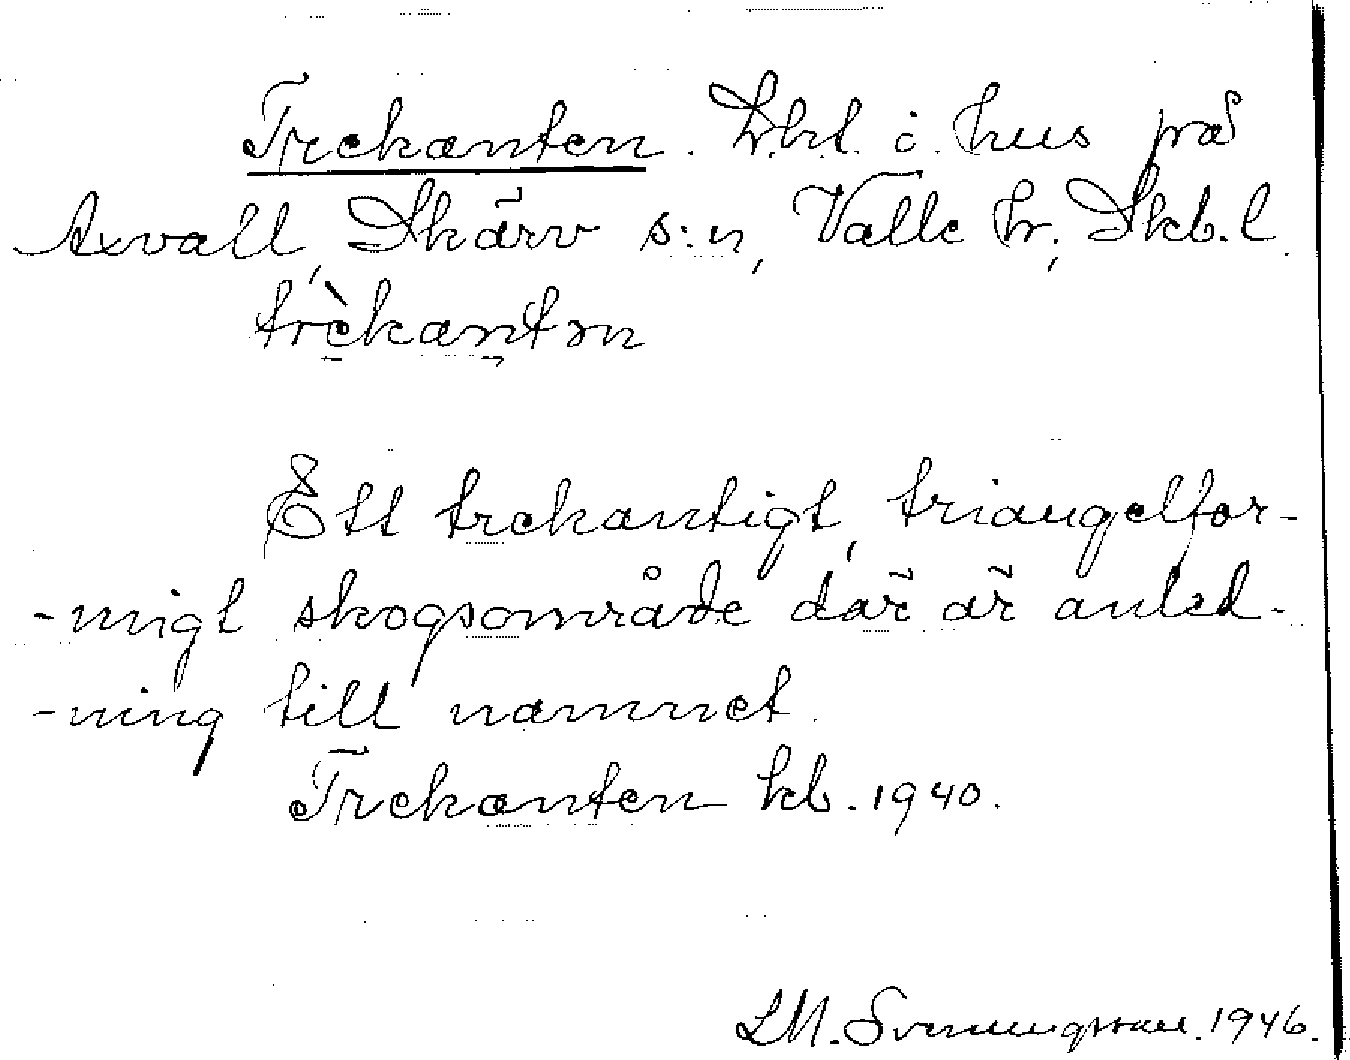 Trekanten. Lht i hus på
Axvall, Skärv s:n, Valle hr, Skb. l.
trèkantən
Ett trekantigt, triangelfor-
-migt skogsområde där är anled-
-ning till namnet.
Trekanten kb. 1940.
LM. Svenungsson. 1946.